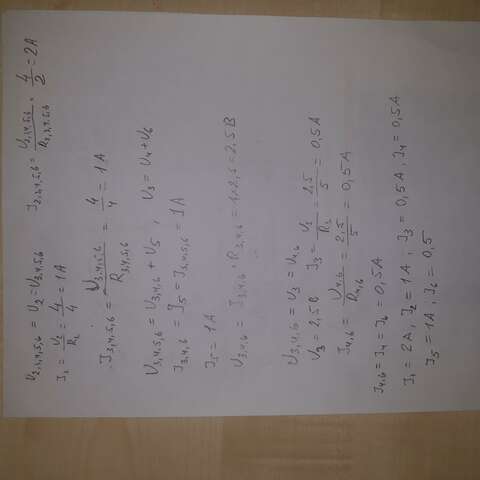 U2,3,4,5,6 = U2 = U3,4,5,6 I2,3,4,5,6 = U2,3,4,5,6 / R2,3,4,5,6 = 4/2 = 2A
I2 = U2/R2 = 4/4 = 1A
I3,4,5,6 = U3,4,5,6 / R3,4,5,6 = 4/4 = 1A
U3,4,5,6 = U3,4,6 + U5 , U3 = U4 + U6
I3,4,6 = I5 = I3,4,5,6 = 1A
I5 = 1A
U3,4,6 = I3,4,6 · R3,4,6 = 1 × 2,5 = 2,5 В
U3,4,6 = U3 = U4,6
U3 = 2,5 В I3 = = 2,5/5 = 0,5A
I4,6 = U4,6 / R4,6 = 2,5/5 = 0,5A
I4,6 = I4 = I6 = 0,5A
I1 = 2A ; I2 = 1A ; I3 = 0,5A ; I4 = 0,5A
I5 = 1A ; I6 = 0,5